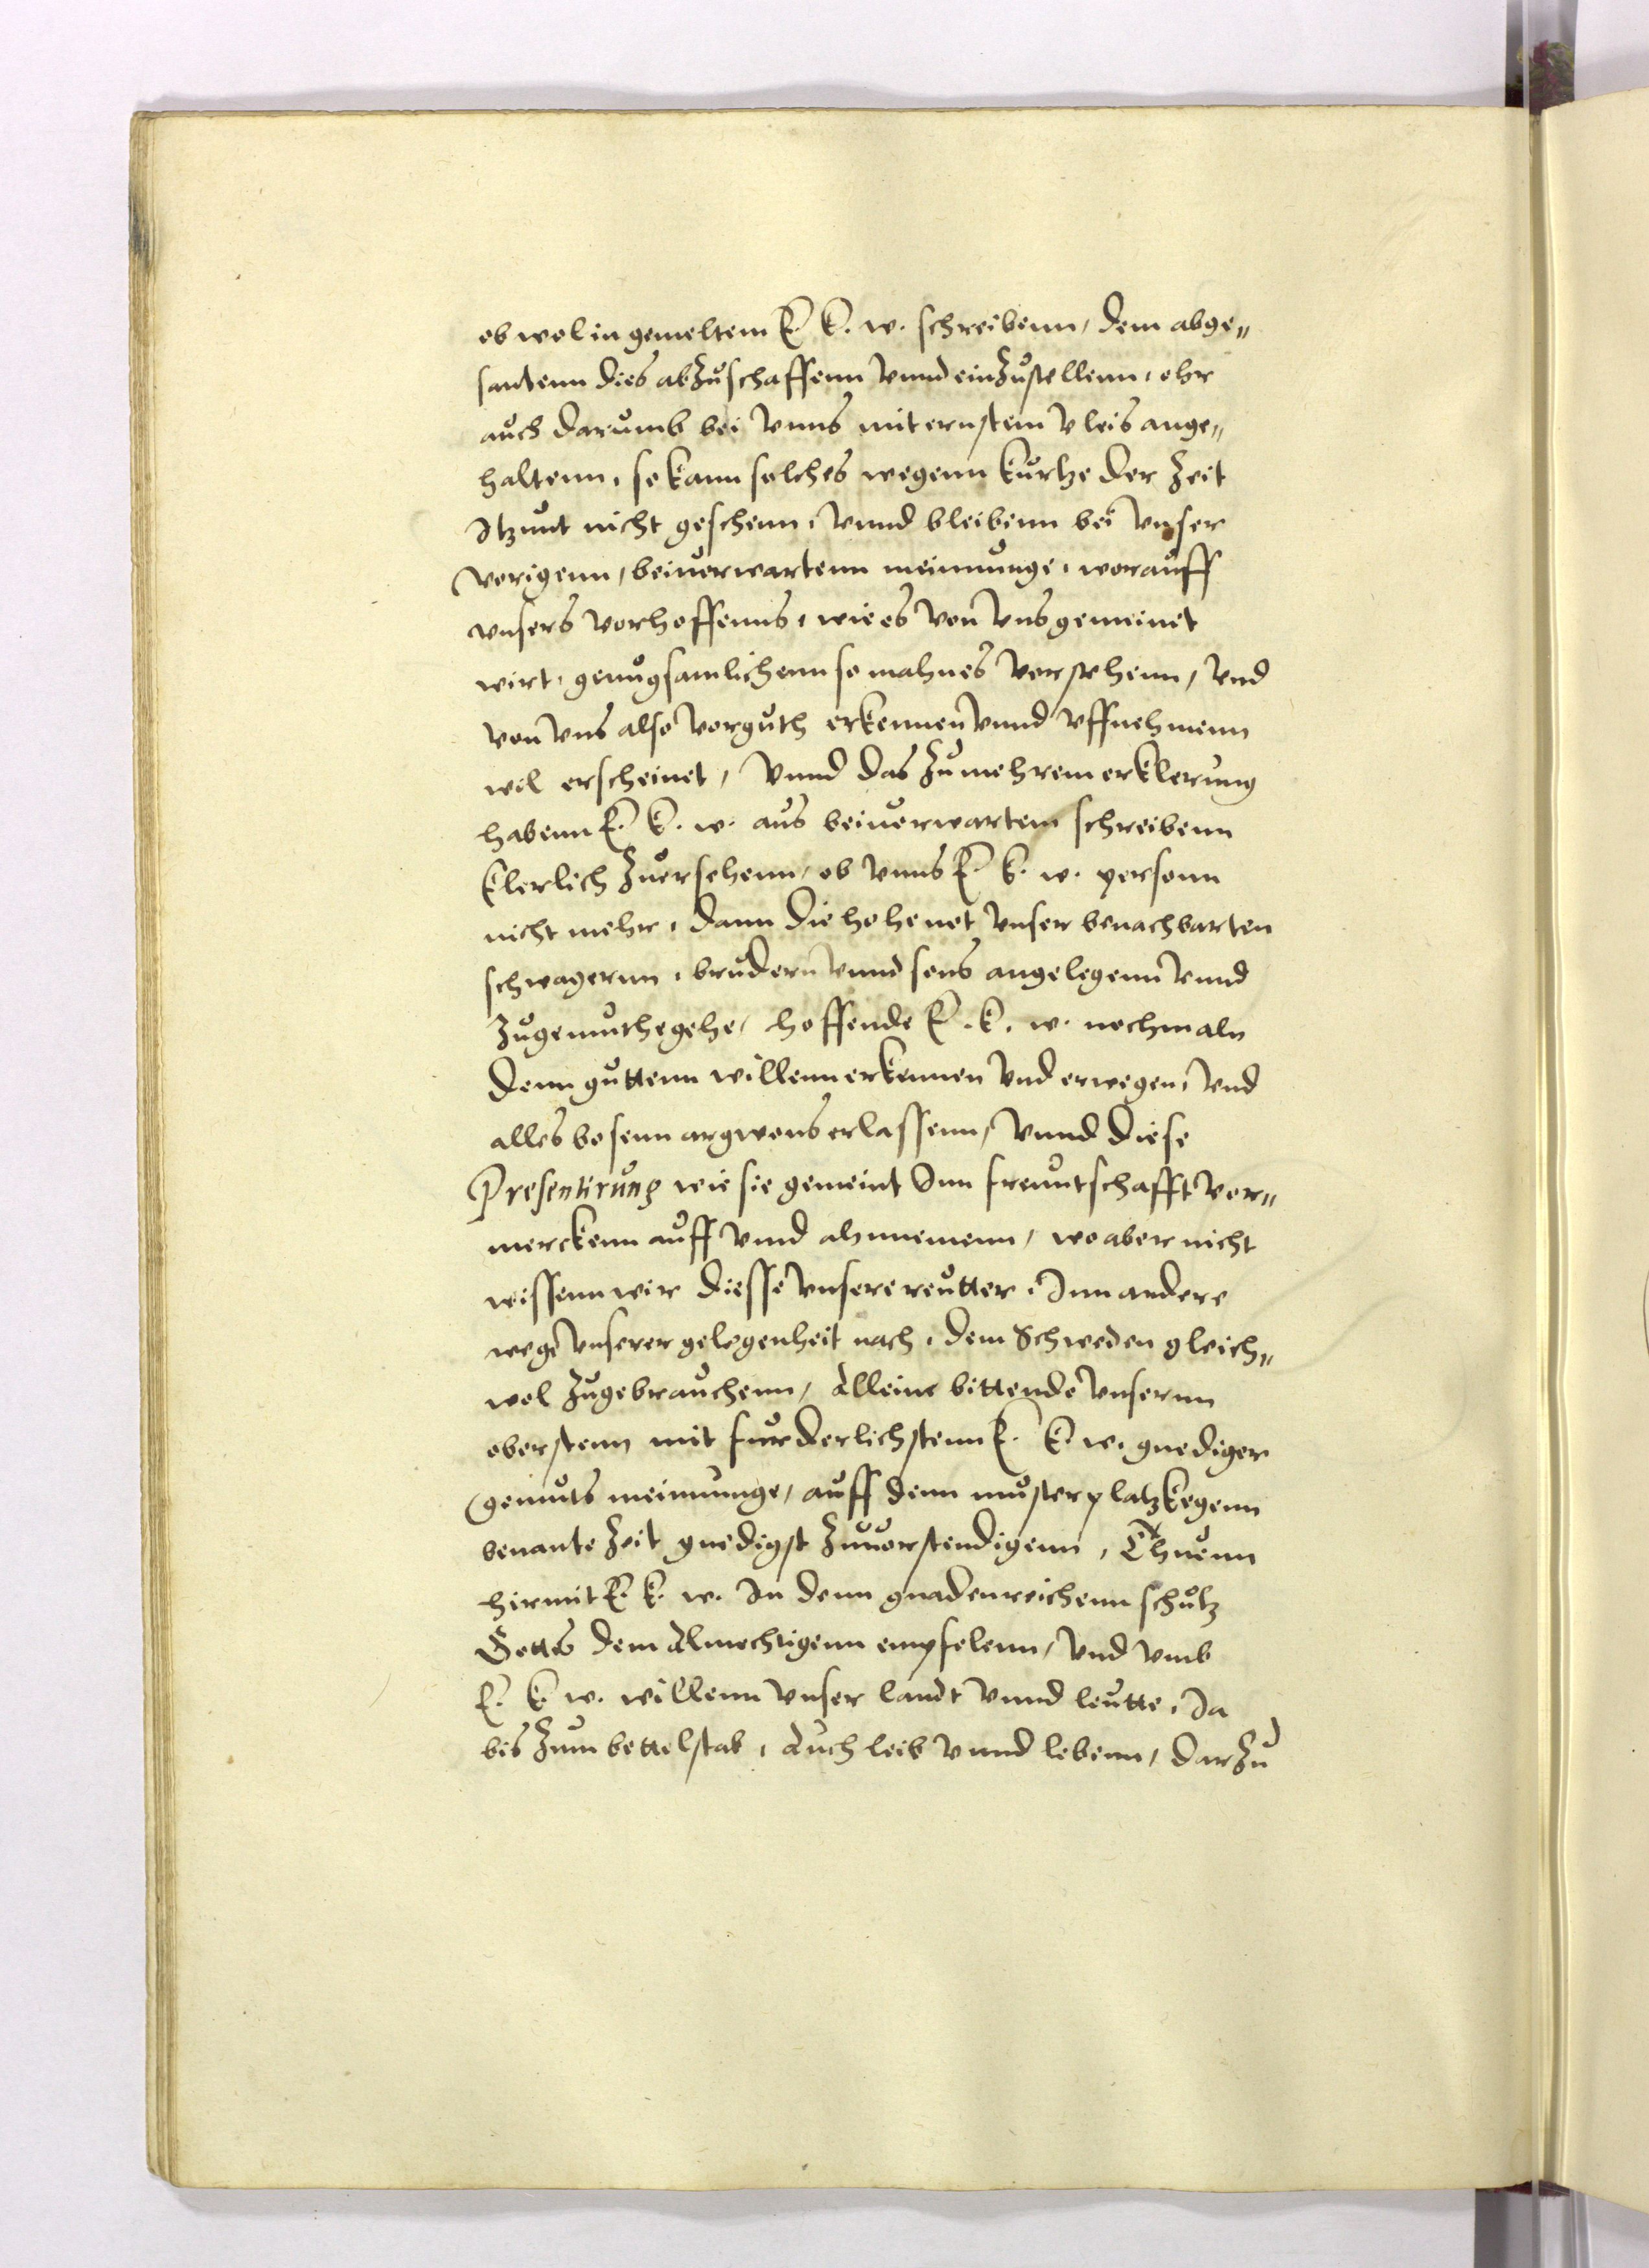 ob wol in gemeltem E. k. w. schreibenn, dem abge„
santenn dies abzuschaffenn vnnd einzustellenn, ehr
auch darumb bei vnns mit ernstem vleis ange„
haltenn, so kann solches wegenn kurtze der Zeit
Itzunt nicht geschenn, vnnd bleibenn bei vnser
vorigenn, beiuerwartenn meinnunge, worauff
vnsers vorhoffenns, wie es von vns gemeinet
wirt, genugsamlichenn so mahnes verstehenn, vnd
von vns also vorguth erkennen vnnd vffnehmenn
wil erscheinet, vnnd das zu mehrem erklerung
habenn E. k. w. aus beiuerwartem schreibenn
klerlich zuersehenn, ob vnns E. k. w. personn
nicht mehr, dann die hohe not vnser benachbarten
schwagernn, brudern vnnd sons angelegenn vnnd
zugemuthe gehe, hoffende E. k. w. nochmaln
denn guttenn willenn erkennen vnd erwegen, vnd
alles bosenn argwons erlassenn, vnnd diese
Presentirung wie sie gemeint Inn freuntschafft ver„
merckenn auff vnnd ahnnemenn, wo aber nicht
wissenn wir diesse vnsere reutter, Inn andere
wege vnserer gelegenheit nach, dem Schweden gleich„
wol zugebrauchenn, Alleine bittende vnsernn
oberstenn mit furderlichstenn E. k. w. gnediger
gemuts meinnunge, auff denn musterplatz kegenn
benante Zeit gnedigst zuuorstendigenn, Thuenn
hirmit E. k. w. In denn gnadenreichenn schutz
Gottes dem Almechtigenn empfelenn, vnd vmb
E. k. w. willenn vnser landt vnnd leutte, Ja
bis zum bettelstab, Auch leib vnnd lebenn, darzu